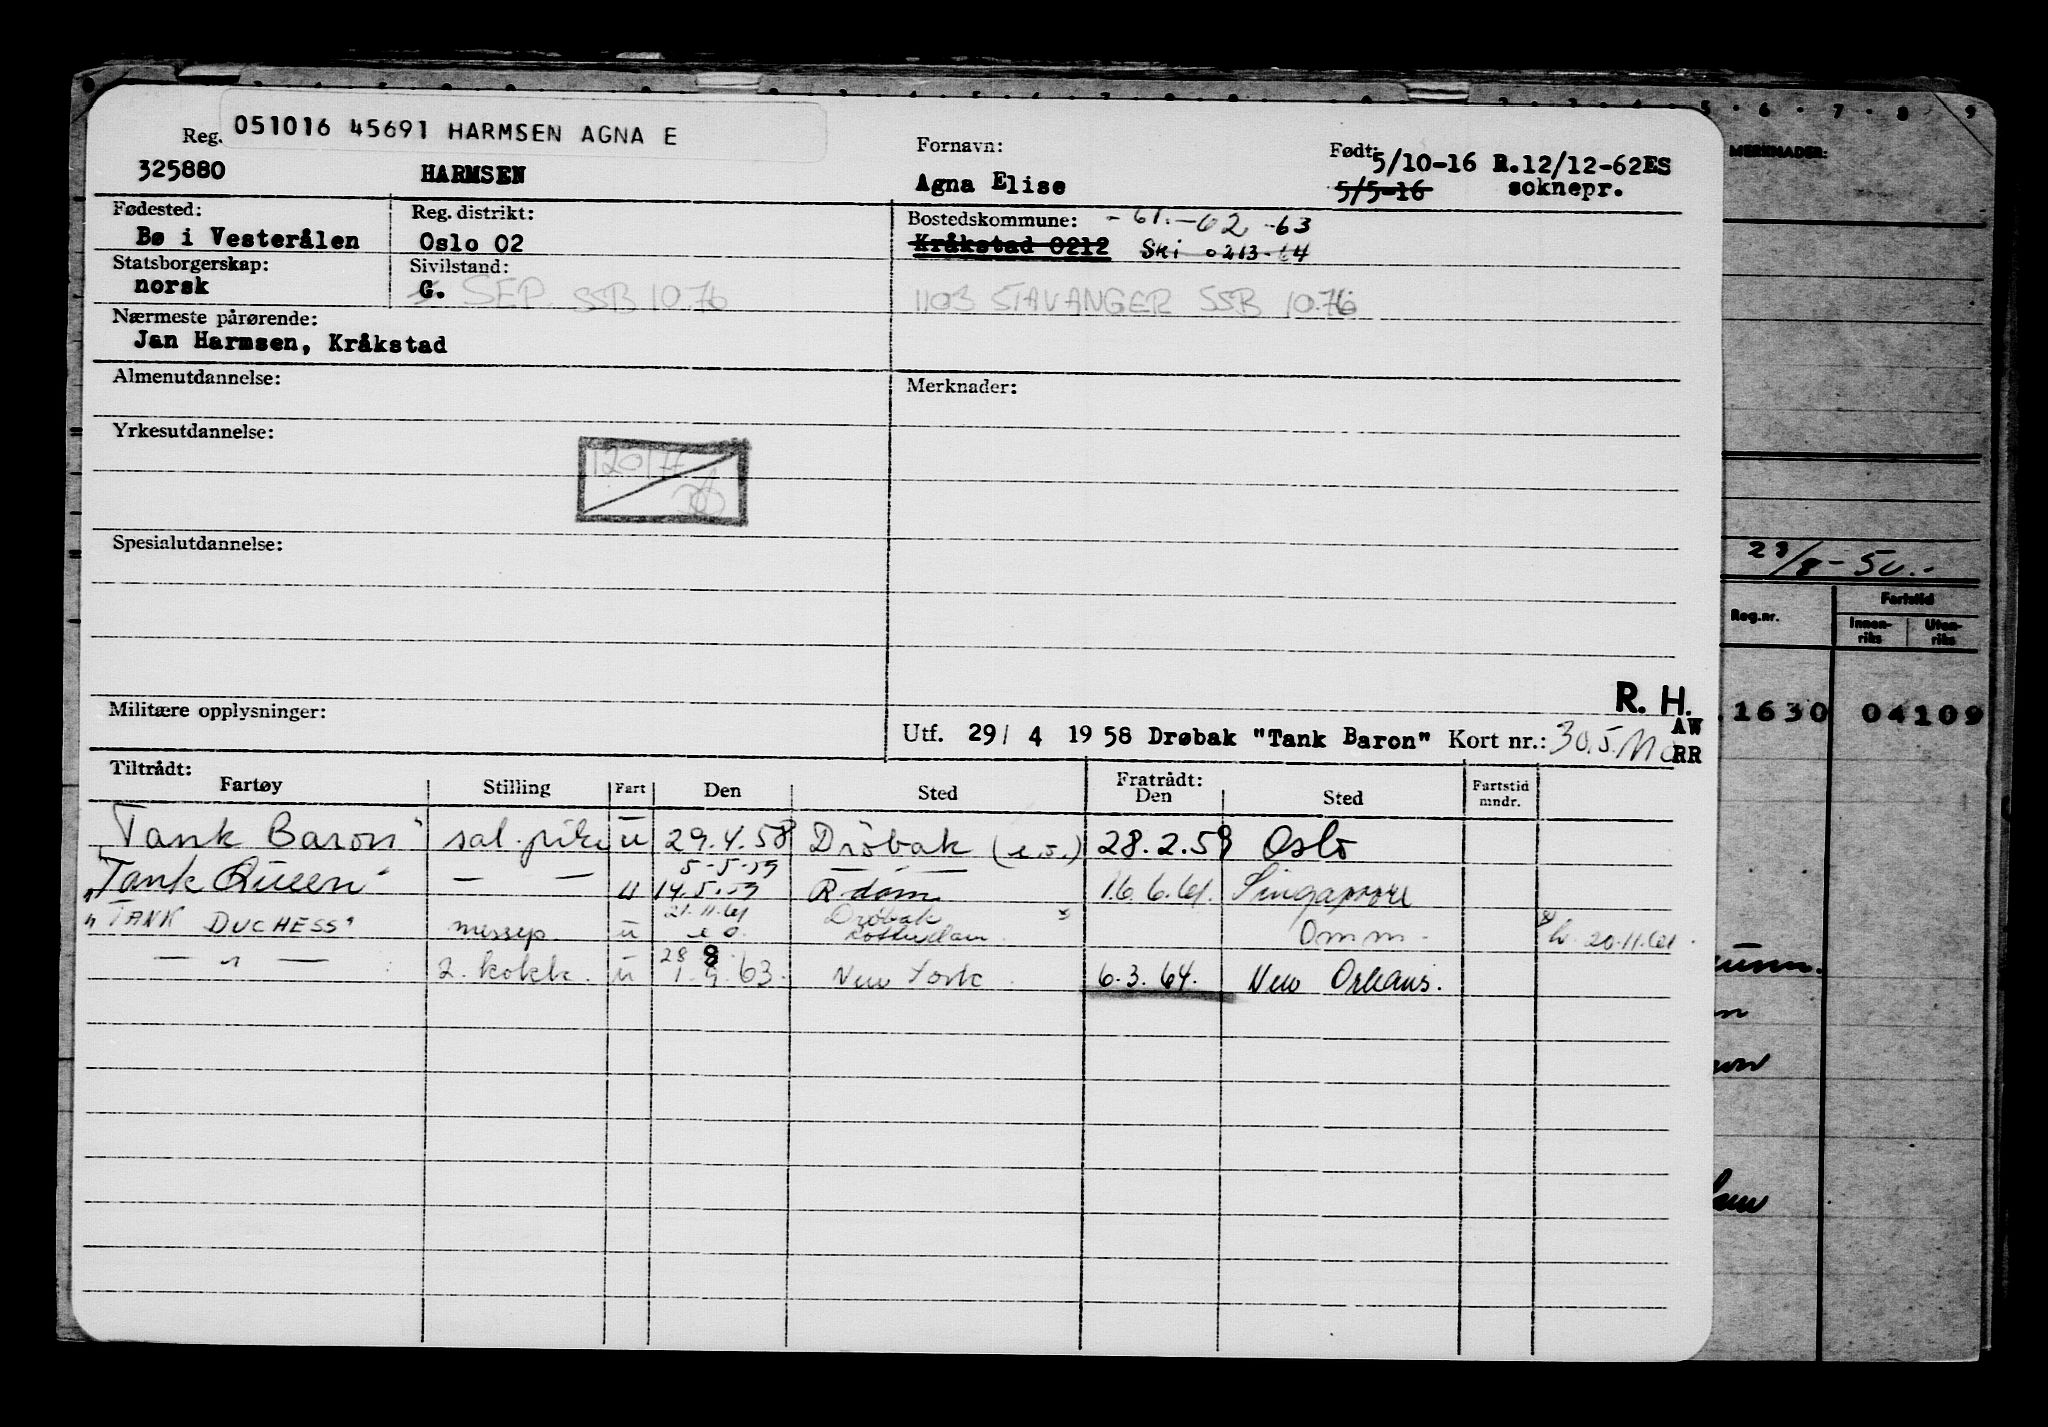 051016 45691 HARMSEN AGNA E
Reg. Fornavn: Født: 5/10-16 R.12/12-62ES
325880 HARMSEN Agna Elise 5/5-16 soknepr.
Fødested: Reg. distrikt: Bostedskommune: -61.-62-63
Bø i Vesterålen Oslo 02 Kråkstad 0212 Ski 0213-64
Statsborgerskap: Sivilstand:
norsk G. SEP. SSB 10.76 1103 STAVANGER SSB 10.76
Nærmeste pårørende:
Jan Harmsen, Kråkstad
Almenutdannelse: Merknader:
Yrkesutdannelse:
Spesialutdannelse:
R. H.
Militære opplysninger:
AW
Utf. 29/ 4 1958 Drøbak "Tank Baron" Kort nr.: 30.5. RR
Tiltrådt: Fratrådt:
Fartøy Stilling Fart Den Sted Den Sted Fartstid mndr.
Tank Baron" sal.pike u 29.4.58 Drøbak (e.o.) 28.2.59 Oslo
5-5-59
"Tank Queen" — — u 14.5.59 R-dam 16.6.61. Singapore
21.11.61 Drøbak x
"TANK DUCHESS" messep. u e o. Rotterdam Omm. 20.11.61.
28 8
— " — 2. kokk. u 1.9.63. New York 6.3.64. New Orleans.
MERKNADER:
28/8-50.-
Reg.nr. Fartstid
Innen-riks Uten-riks
1630 04109
5 6 7 8 9